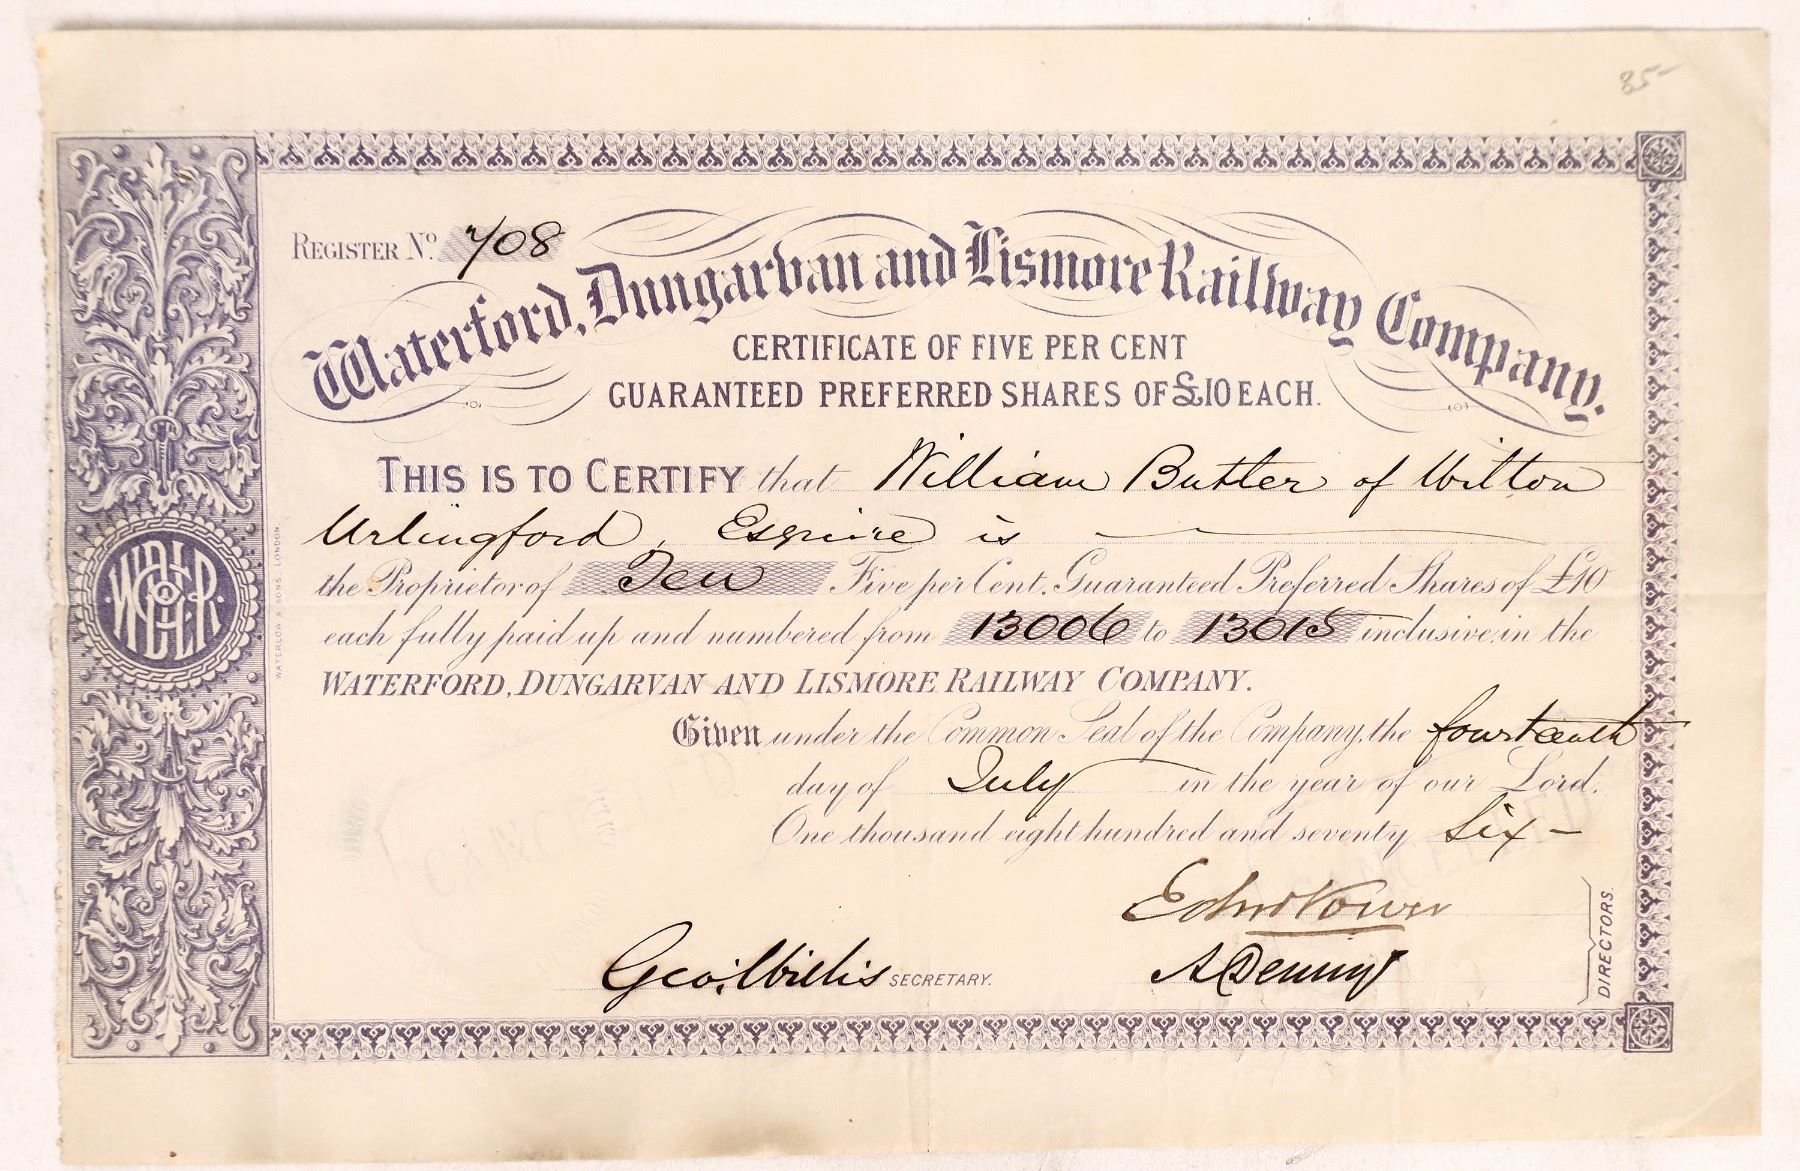 85-
REGISTER No. 708
Waterford, Dungarvan and Lismore Railway Company.
CERTIFICATE OF FIVE PER CENT
GUARANTEED PREFERRED SHARES OF £10 EACH.
THIS IS TO CERTIFY that William Butler of Wilton
Urlingford, Esquire is
the Proprietor of Ten Five per Cent. Guaranteed Preferred Shares of £10
each fully paid up and numbered from 13006 to 13015 inclusive, in the
WATERFORD, DUNGARVAN AND LISMORE RAILWAY COMPANY.
Given under the Common Seal of the Company, the fourteenth
day of July in the year of our Lord.
One thousand eight hundred and seventy Six -
CANCELLED
CANCELLED
Geo. Willis SECRETARY.
A Denny
DIRECTORS.
WATERLOW & SONS, LONDON